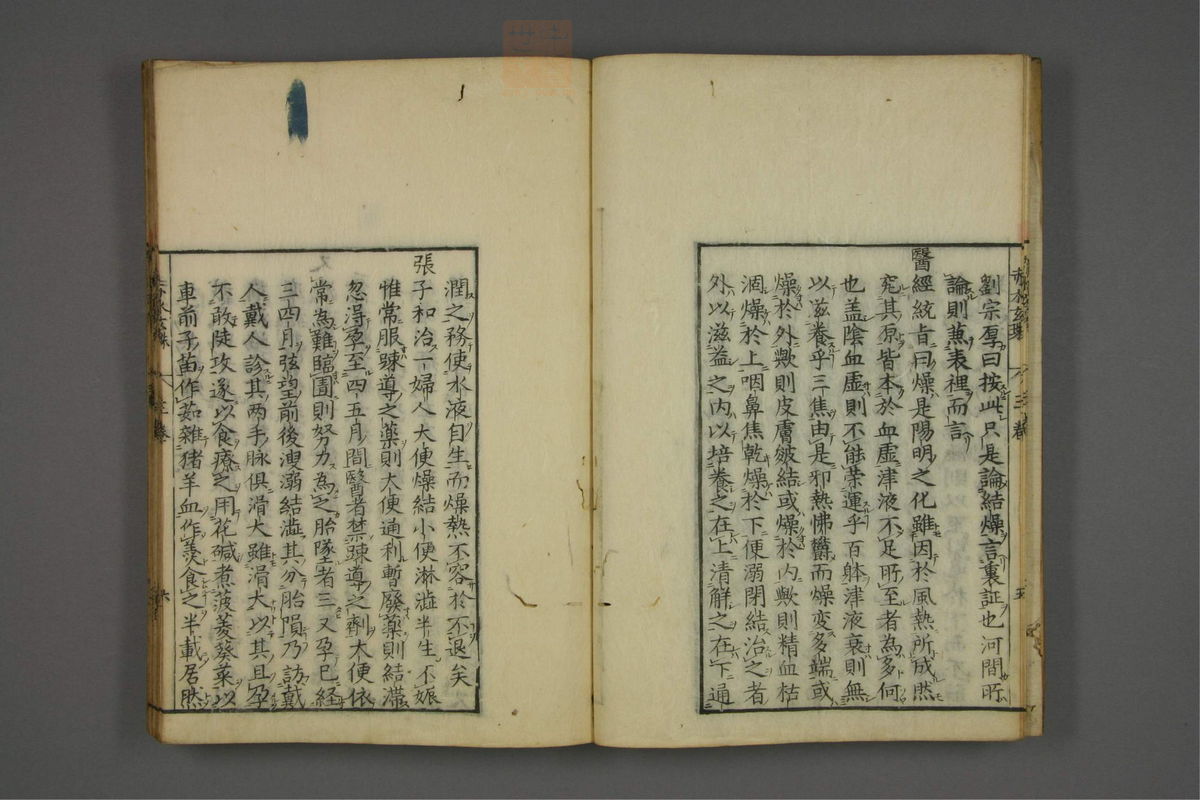 劉宗厚曰按此只是論結燥言裏証也河間所
論則蒹表裡而言
醫經統旨曰燥是陽明之化雖因於風熱所成然
究其原皆本於血虛津液不足所至者為多何
也盖陰血虛則不能荣運乎百躰津液衰則無
以滋養乎三焦由是邪熱怫欝而燥変多端或
燥於外歟則皮膚皴結或燥於内歟則精血枯
涸燥於上咽鼻焦乾燥於下便溺閉結治之者
外以滋益之内以培養之在上清解之在下通
潤之務使水液自生而燥熱不容於不退矣
張子和治一婦人大便燥結小便淋澁半生不娠
惟常服踈導之薬則大便通利暫廢薬則結滯
忽淂孕至四五月間醫者禁踈導之劑大便依
常為難臨圊則努力為之胎墜者三又孕已経
三四月弦望前後溲溺結澁其分胎隕乃訪戴
人戴人診其两手脉俱滑大雖滑大以其且孕
不敢陡攻遂以食療之用花碱煮菠菱葵菜以
車前子苗作茹雜猪羊血作羹食之半載居然
三卷
五
三卷
六